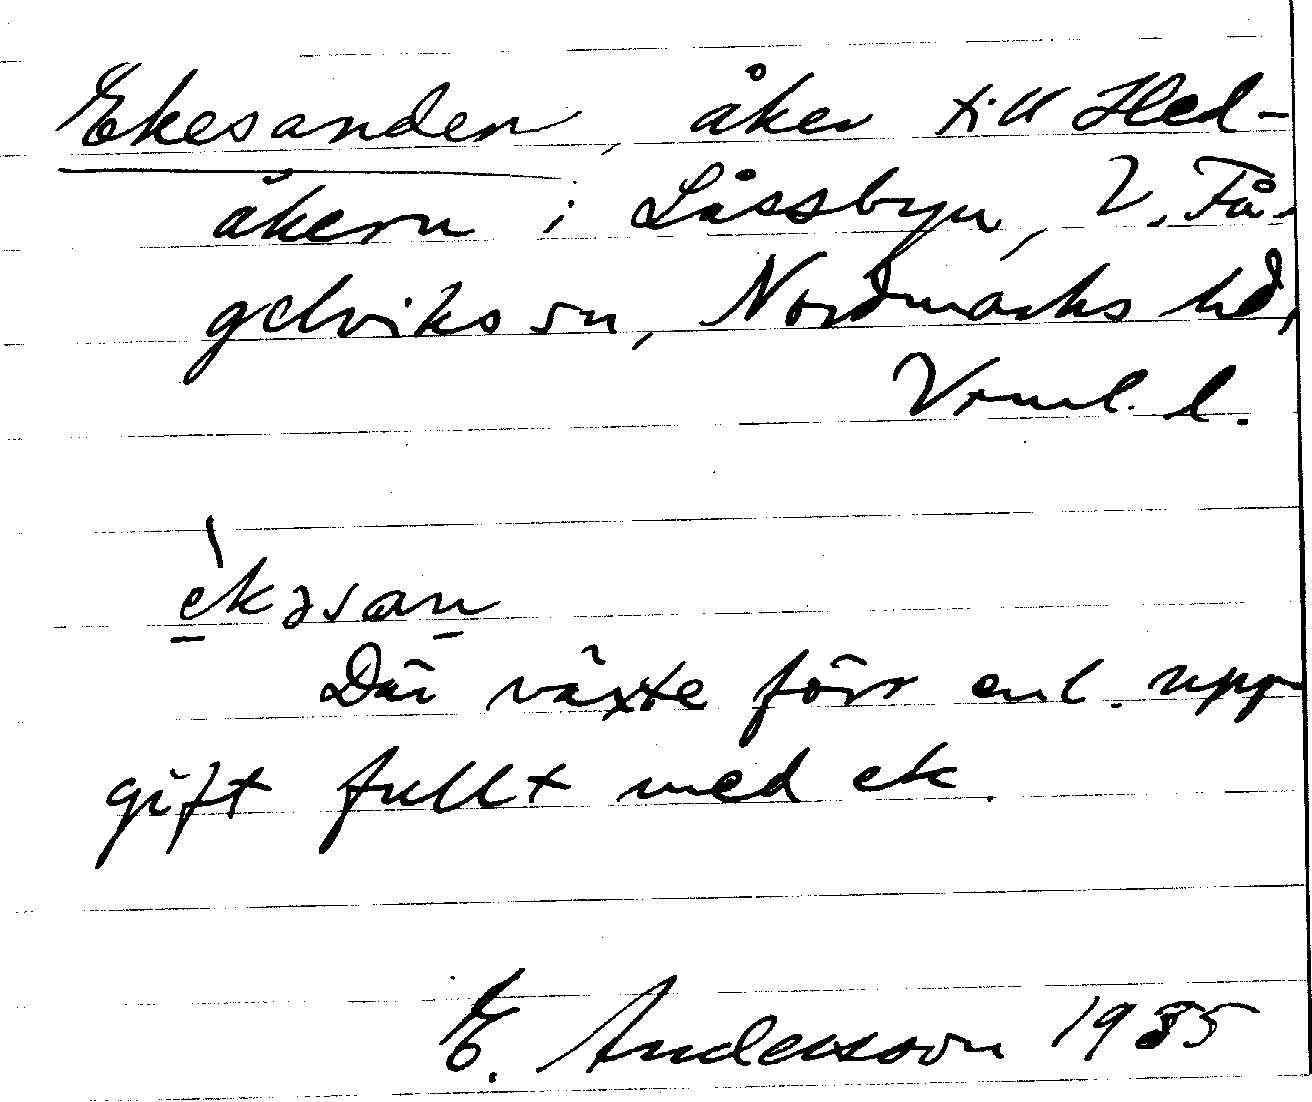 Ekesanden, åker till Hed-
åkern i Låssbyn, V. Få-
gelviks sn, Nordmarks hd,
Vrml. l.
èkəsan
Där växte förr enl. upp
gift fullt med ek.
E. Andersson 1935